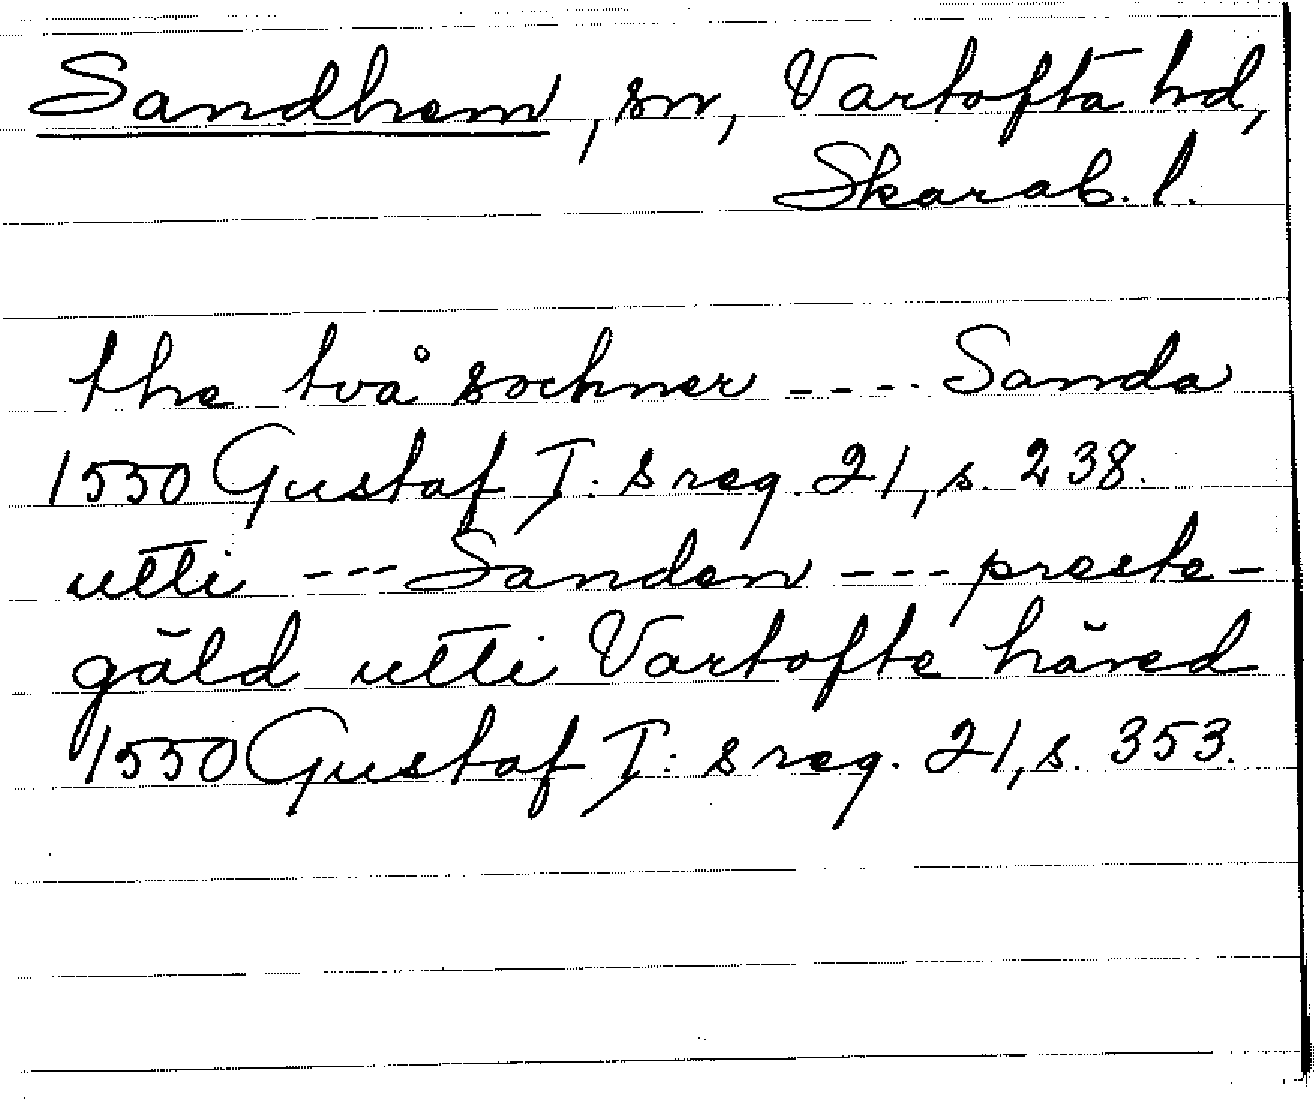 Sandhem, sn, Vartofta hd,
Skarab. l.
the två sochner ---- Sanda
1550 Gustaf I: s reg. 21, s. 238.
utti --- Sanden --- preste-
gäld utti Vartofte häred
1550 Gustaf I: s reg. 21, s. 353.